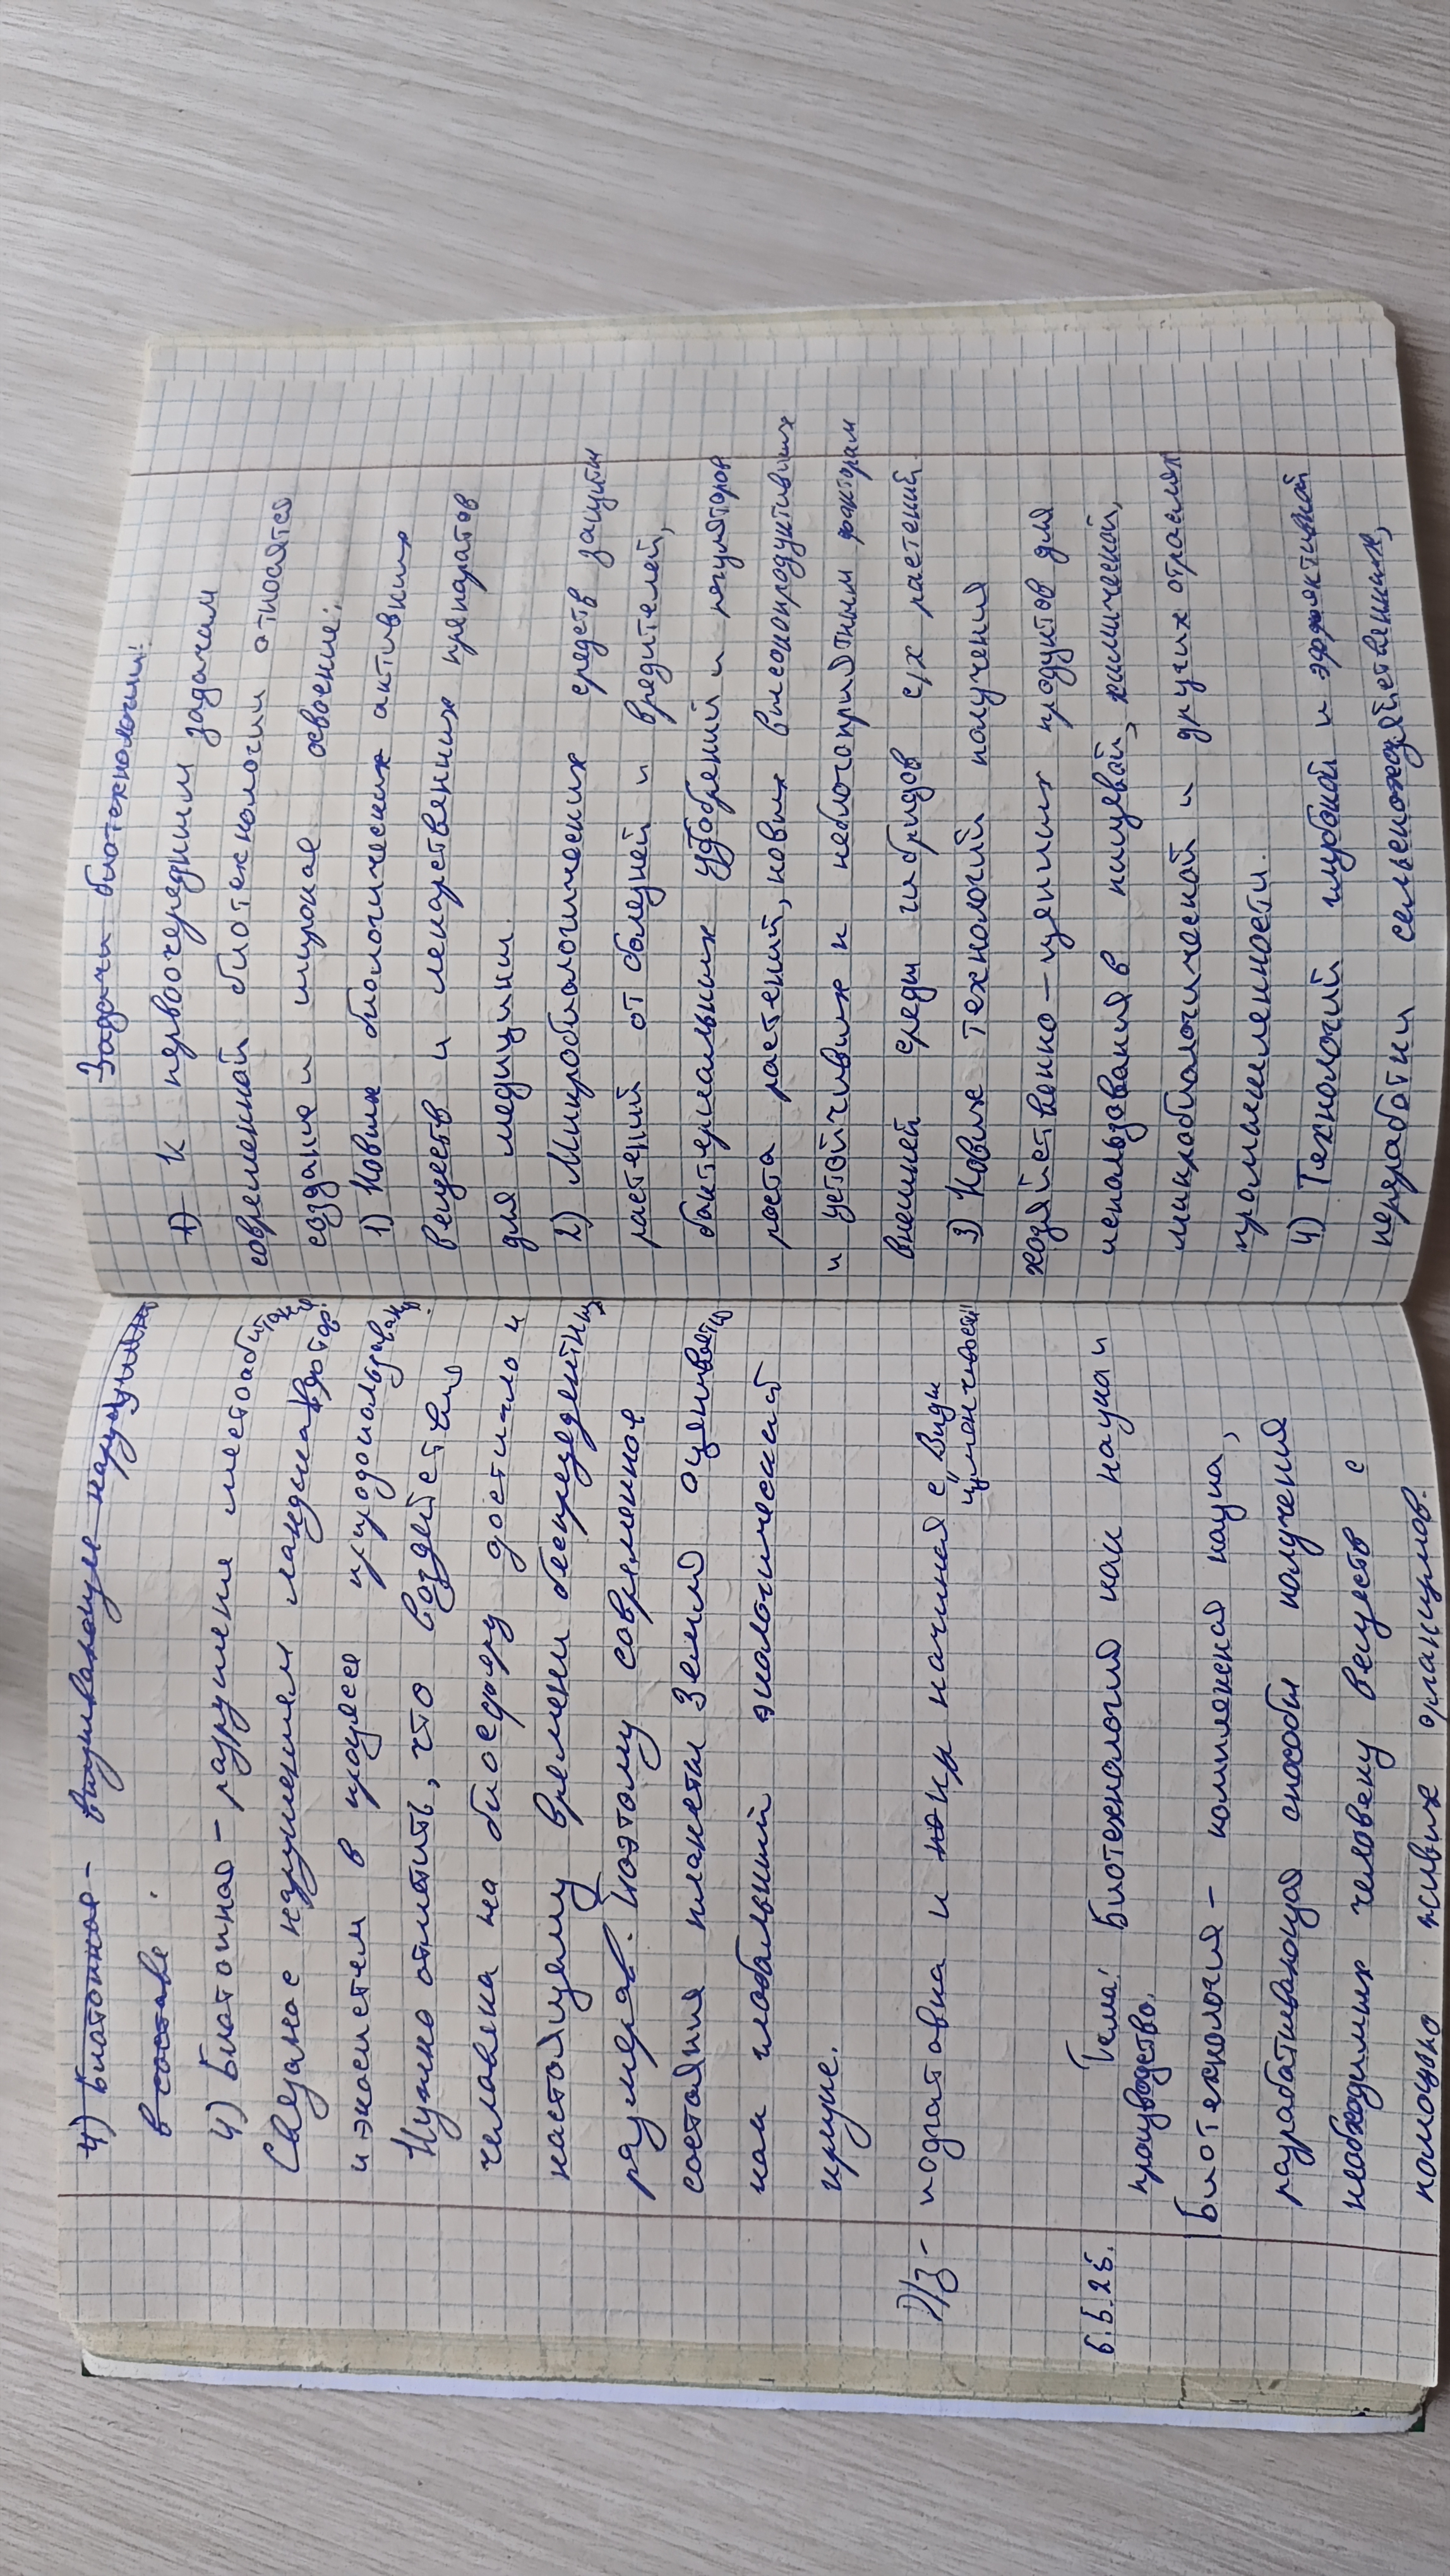 4) Биотопное - выживающие нарушения
в составе
4) Биотопная - разрушение местообит.
Связаное нарушением ландшафтов
и экосистем в процессе природопользован.
Нужно отметить, что воздействия
человека на биосферу достигло к
настоящему времени беспрецедентных
размеров. Поэтому современное
состояния планеты Земля оценивается
как глобальный экологический
кризис.
Д/З - подготовка и конр начиная с "Виды
изменчивости"
6.5.25. Тема: Биотехнология как наука и
производство.
Биотехнология - комплексная наука,
разрабатывающая способы получения
необходимых человеку веществ с
помощью живых организмов.
Задачи биотехнологии:
1) К первоочередным задачам
современной биотехнологии относятся
создание и широкое освоение:
1) Новых биологических активных
веществ и лекарственных препаратов
для медицины.
2) Микробиологических средств защиты
растений от болезней и вредителей,
бактериальных удобрений и регуляторов
роста растений, новых высокопродуктивных
и устойчивых к неблагоприятным факторам
внешней среды гибридов с/х растений
3) Новых технологий получения
хозяйственно-ценных продуктов для
использования в пищевой, химической,
микробиологической и других отраслях
промышленности.
4) Технологий глубокой и эффективной
переработки сельскохозяйственных,